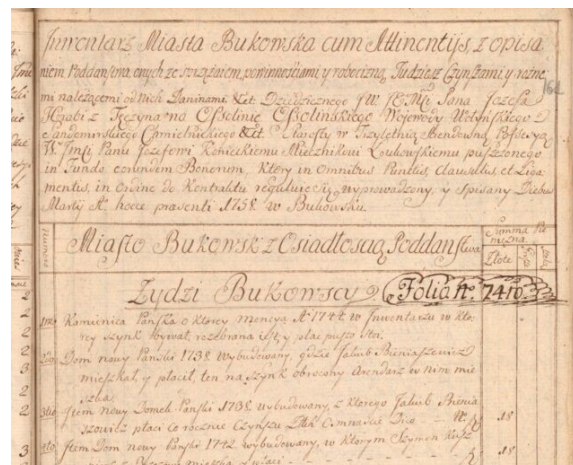 Inwentarz Miasta Bukowska cum Attinentijs, z opisa
niem Poddaństwa, onych ze sprzężaiem, powinnościami, y robocizną, Tudziesz Czynszami y rożne
mi należącemi od Nich Daninami &ct. Dziedzicznego JW JMsci Pana Jozefa
Hrabi z Tęczyna na Ossolinie Ossolinskiego Woiewody Wołynskiego
Sandomirskiego Chmielnickiego &ct. Starosty w Trzyletnią Possesyą
W JMsci Panu Jozefowi Miecznikowi puszczonego
in Fundo eorundem Bonorum, Ktory in Omnibus Punctis, Clausulis, et Liga
mentis, in Ordine do Kontraktu reguluie się, wyprowadzony, y Spisany Diebus
Martij Ao hocce praesenti 1758 w Bukowsku.
162
Numero
Miasto Bukowsk z Osiadłoscią Poddanstwa
Summa Pie
niężna
Złote
Żydzi Bukowscy Folia No 7410.
1mo Kamienica Pańska o ktorey mencya Ao 1744 w Inwentarzu w kto
rey szynk bywał, rozebrana iest, y plac pusto stoi.
2do Dom nowy Pański 1738 wybudowany, gdzie Jakub Bieniaszewicz
mieszkał, y płacił, ten na szynk obrocony Arendarz w nim mie
szka.
3tio Item nowy Domek Pański 1738 wybudowany, z ktorego Jakub Bienia
szewicz płaci co rocznie Czynszu 18
4to Item Dom nowy Pański 1742 wybudowany, w ktorym Szymon
18
mieszka y płaci